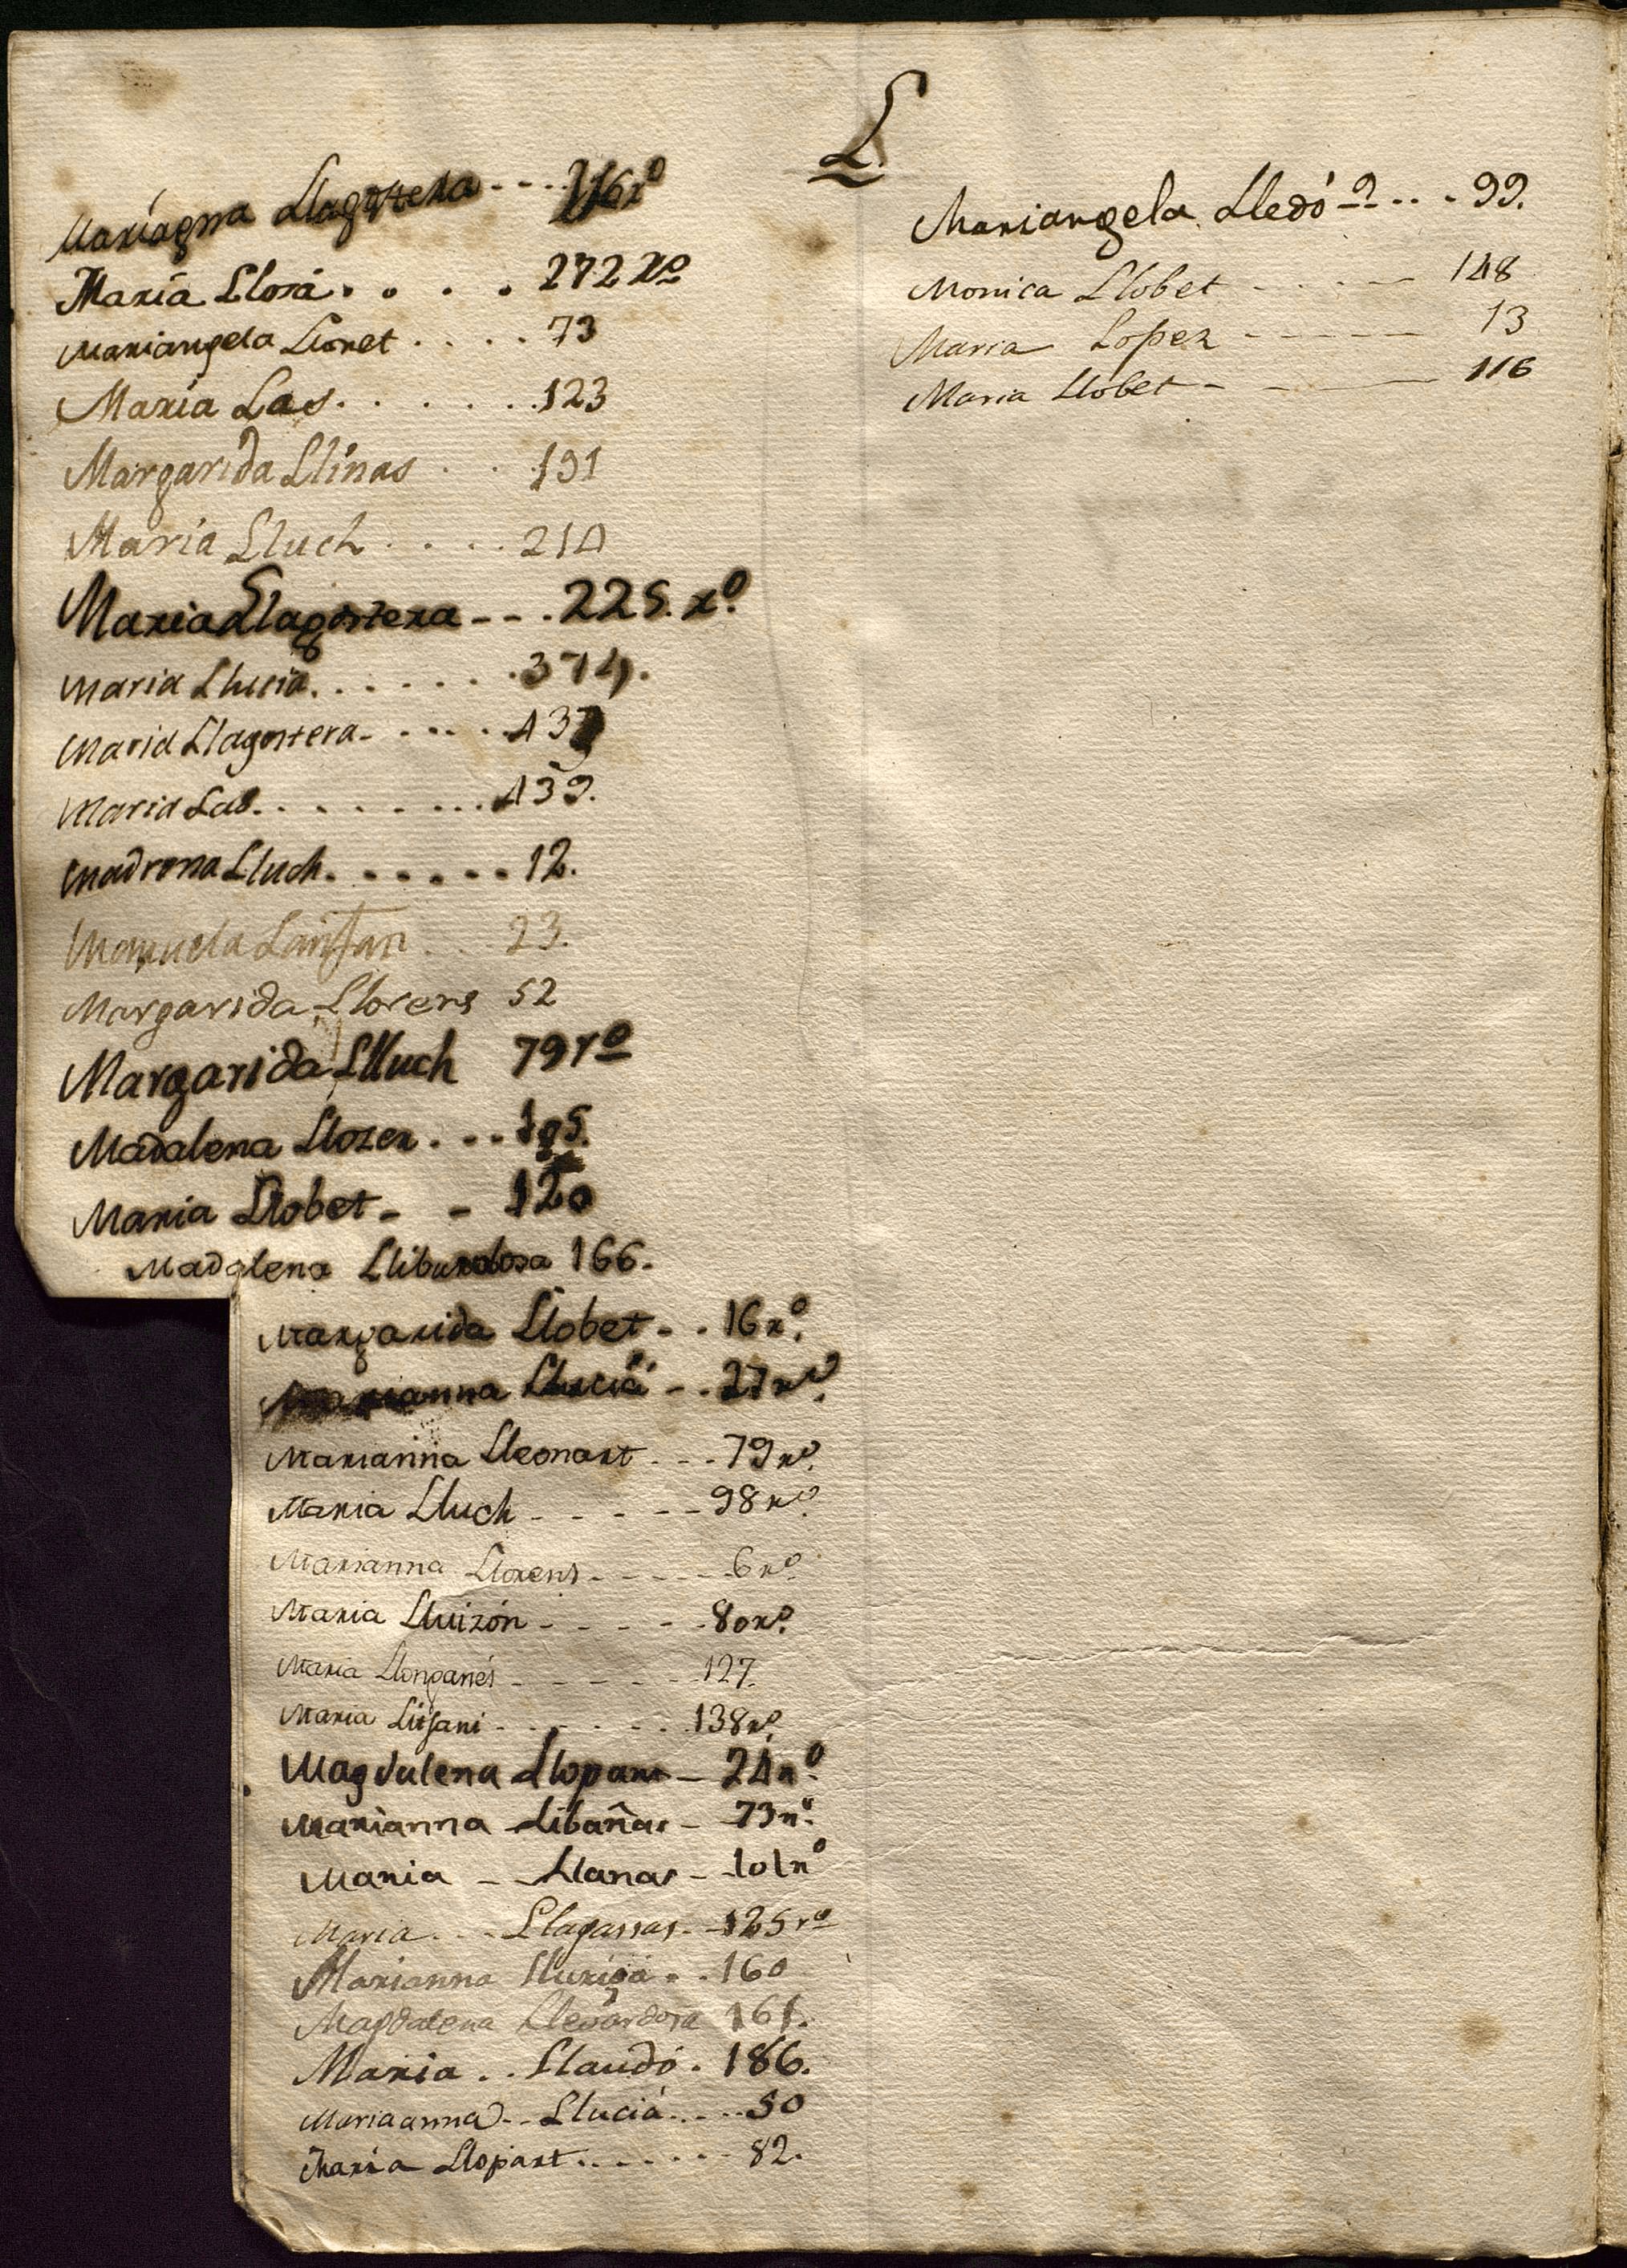 L.
Mariagna Llagostera - - - . 116 rº
Maria Llorá . . . . 272 rº
Mariangela Lloret . . . . 73
Maria Las . . . . . . . 123
Margarida Llinas . . . 191
Maria Lluch . . . . . 214
Maria Llagostera - - - . 225. rº
Maria Llucia . . . . . . . 374.
Maria Llagostera - . . . . 437
Maria Las . . . . . . . . 439.
Madrona Lluch . . . . . . 12.
Manuela . . . 23.
Margarida Llorens 52
Margarida Lluch 79 rº
Madalena Llozer . . . 195.
Maria Llobet - - 120
Madalena 166.
Margarida Llobet - . 16 rº
Marianna Lluciá - . 27 rº
Marianna Lleonart . . . 79 rº
Maria Lluch - - - - - 98 rº
Marianna Llorens - - - - - 6 rº
Maria Lluizón - - - - - 80 rº
Maria Llonganés - - - - - 127.
Maria - . . - . . 138 rº
Magdalena Llopart - 24 rº
Marianna Libañas - 73 rº
Maria - Llanas - 101 rº
Maria . . - Llagassas - 125 rº
Marianna . . 160
Magdalena 161.
Maria . . Llaudó . 186.
Mariaanna - - Lluciá . . . . 50
Maria Llopart . . . . . . . 82.
Mariangela Lledó - . . . 99.
Monica Llobet - - - - 148
Maria Lopez - - - - 13
Maria Llobet - - - 116